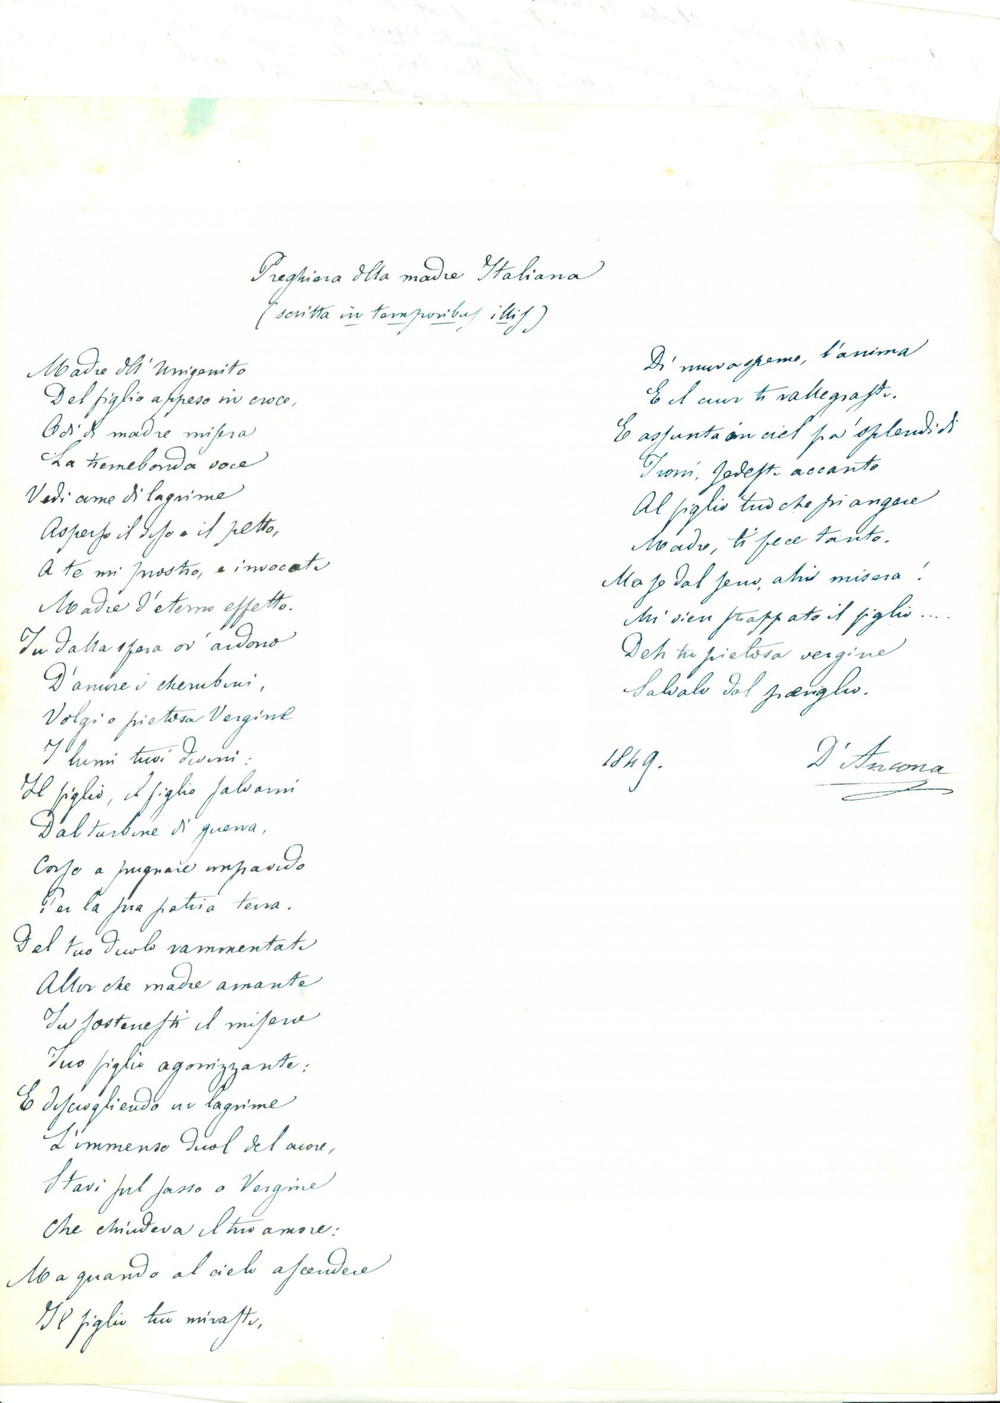 Preghiera della madre Italiana
(scritta in temporibus illis)
Madre dell' Unigenito
Del figlio appeso in croce,
Odi di madre misera
La tremebonda voce
Vedi come di lagrime
Asperso il viso e il petto,
A te mi prostro, e invocoti
Madre d'eterno affetto.
Tu dalla sfera ov' ardono
D'amore i cherubini,
Volgi o pietosa Vergine
I lumi tuoi divini:
Il figlio, il figlio salvami
Dal turbine di guerra,
Corso a pugnare impavido
Per la sua patria terra.
Del tuo duolo rammentati
Allor che madre amante
Tu sostenesti il misero
Tuo figlio agonizzante:
E disciogliendo in lagrime
L'immenso duol del cuore,
Stavi sul sasso o Vergine
Che chiudeva il tuo amore:
Ma quando al cielo ascendere
Il figlio tuo mirasti,
Di nuova speme, l'anima
E il cuor ti rallegrasti.
E assunta in ciel fra' splendidi
Troni, sedesti accanto
Al figlio tuo che piangere
Madre, ti fece tanto.
Ma se dal seno, ahi misera!
Mi vien strappato il figlio....
Deh tu pietosa vergine
Salvalo dal periglio.
1849.
D'Ancona